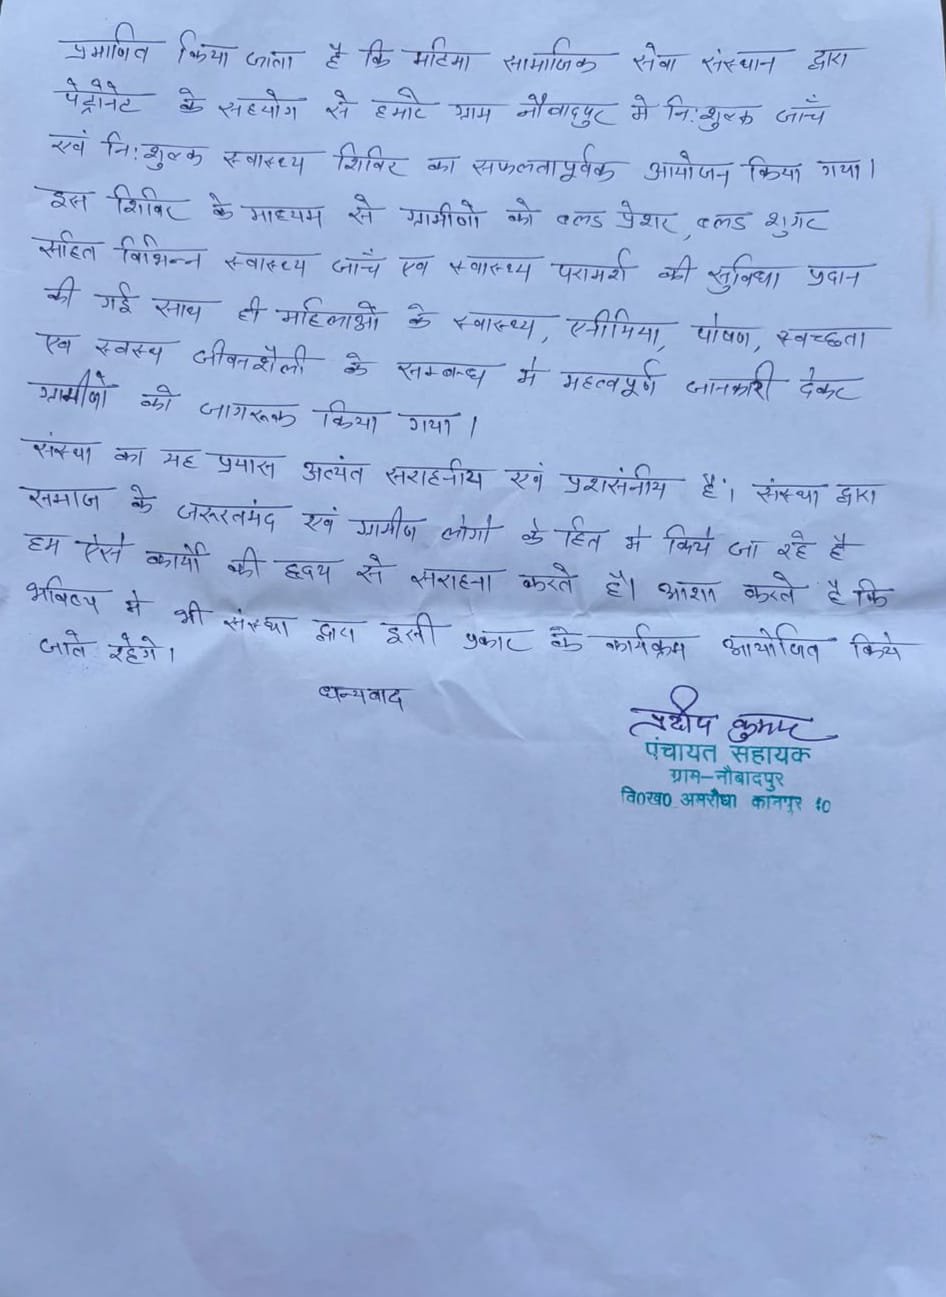 प्रमाणित किया जाता है कि महिमा सामाजिक सेवा संस्थान द्वारा
के सहयोग से हमारे ग्राम नौबादपुर मे नि:शुल्क जाँच
एवं नि:शुल्क स्वास्थ्य शिविर का सफलतापूर्वक आयोजन किया गया।
इस शिविर के माध्यम से ग्रामीणो को ब्लड प्रेशर, ब्लड शुगर
सहित विभिन्न स्वास्थ्य जाँच एव स्वास्थ्य परामर्श की सुविधा प्रदान
की गई साथ ही महिलाओं के स्वास्थ्य, एनीमिया, पोषण, स्वच्छता
एव स्वस्थ जीवनशैली के सम्बन्ध मे महत्वपूर्ण जानकारी देकर
ग्रामीणों को जागरूक किया गया।
संस्था का यह प्रयास अत्यंत सराहनीय एवं प्रशसंनीय है। संस्था द्वारा
समाज के जरूरतमंद एवं ग्रामीण लोगो के हित मे किये जा रहे है
हम ऐसे कार्यो की हृदय से सराहना करते है। आशा करते है कि
भविष्य मे भी संस्था द्वारा इसी प्रकार के कार्यक्रम आयोजित किये
जाते रहेगे।
धन्यवाद
प्रदीप कुमार
पंचायत सहायक
ग्राम-नौबादपुर
वि०ख० अमरौधा कानपुर